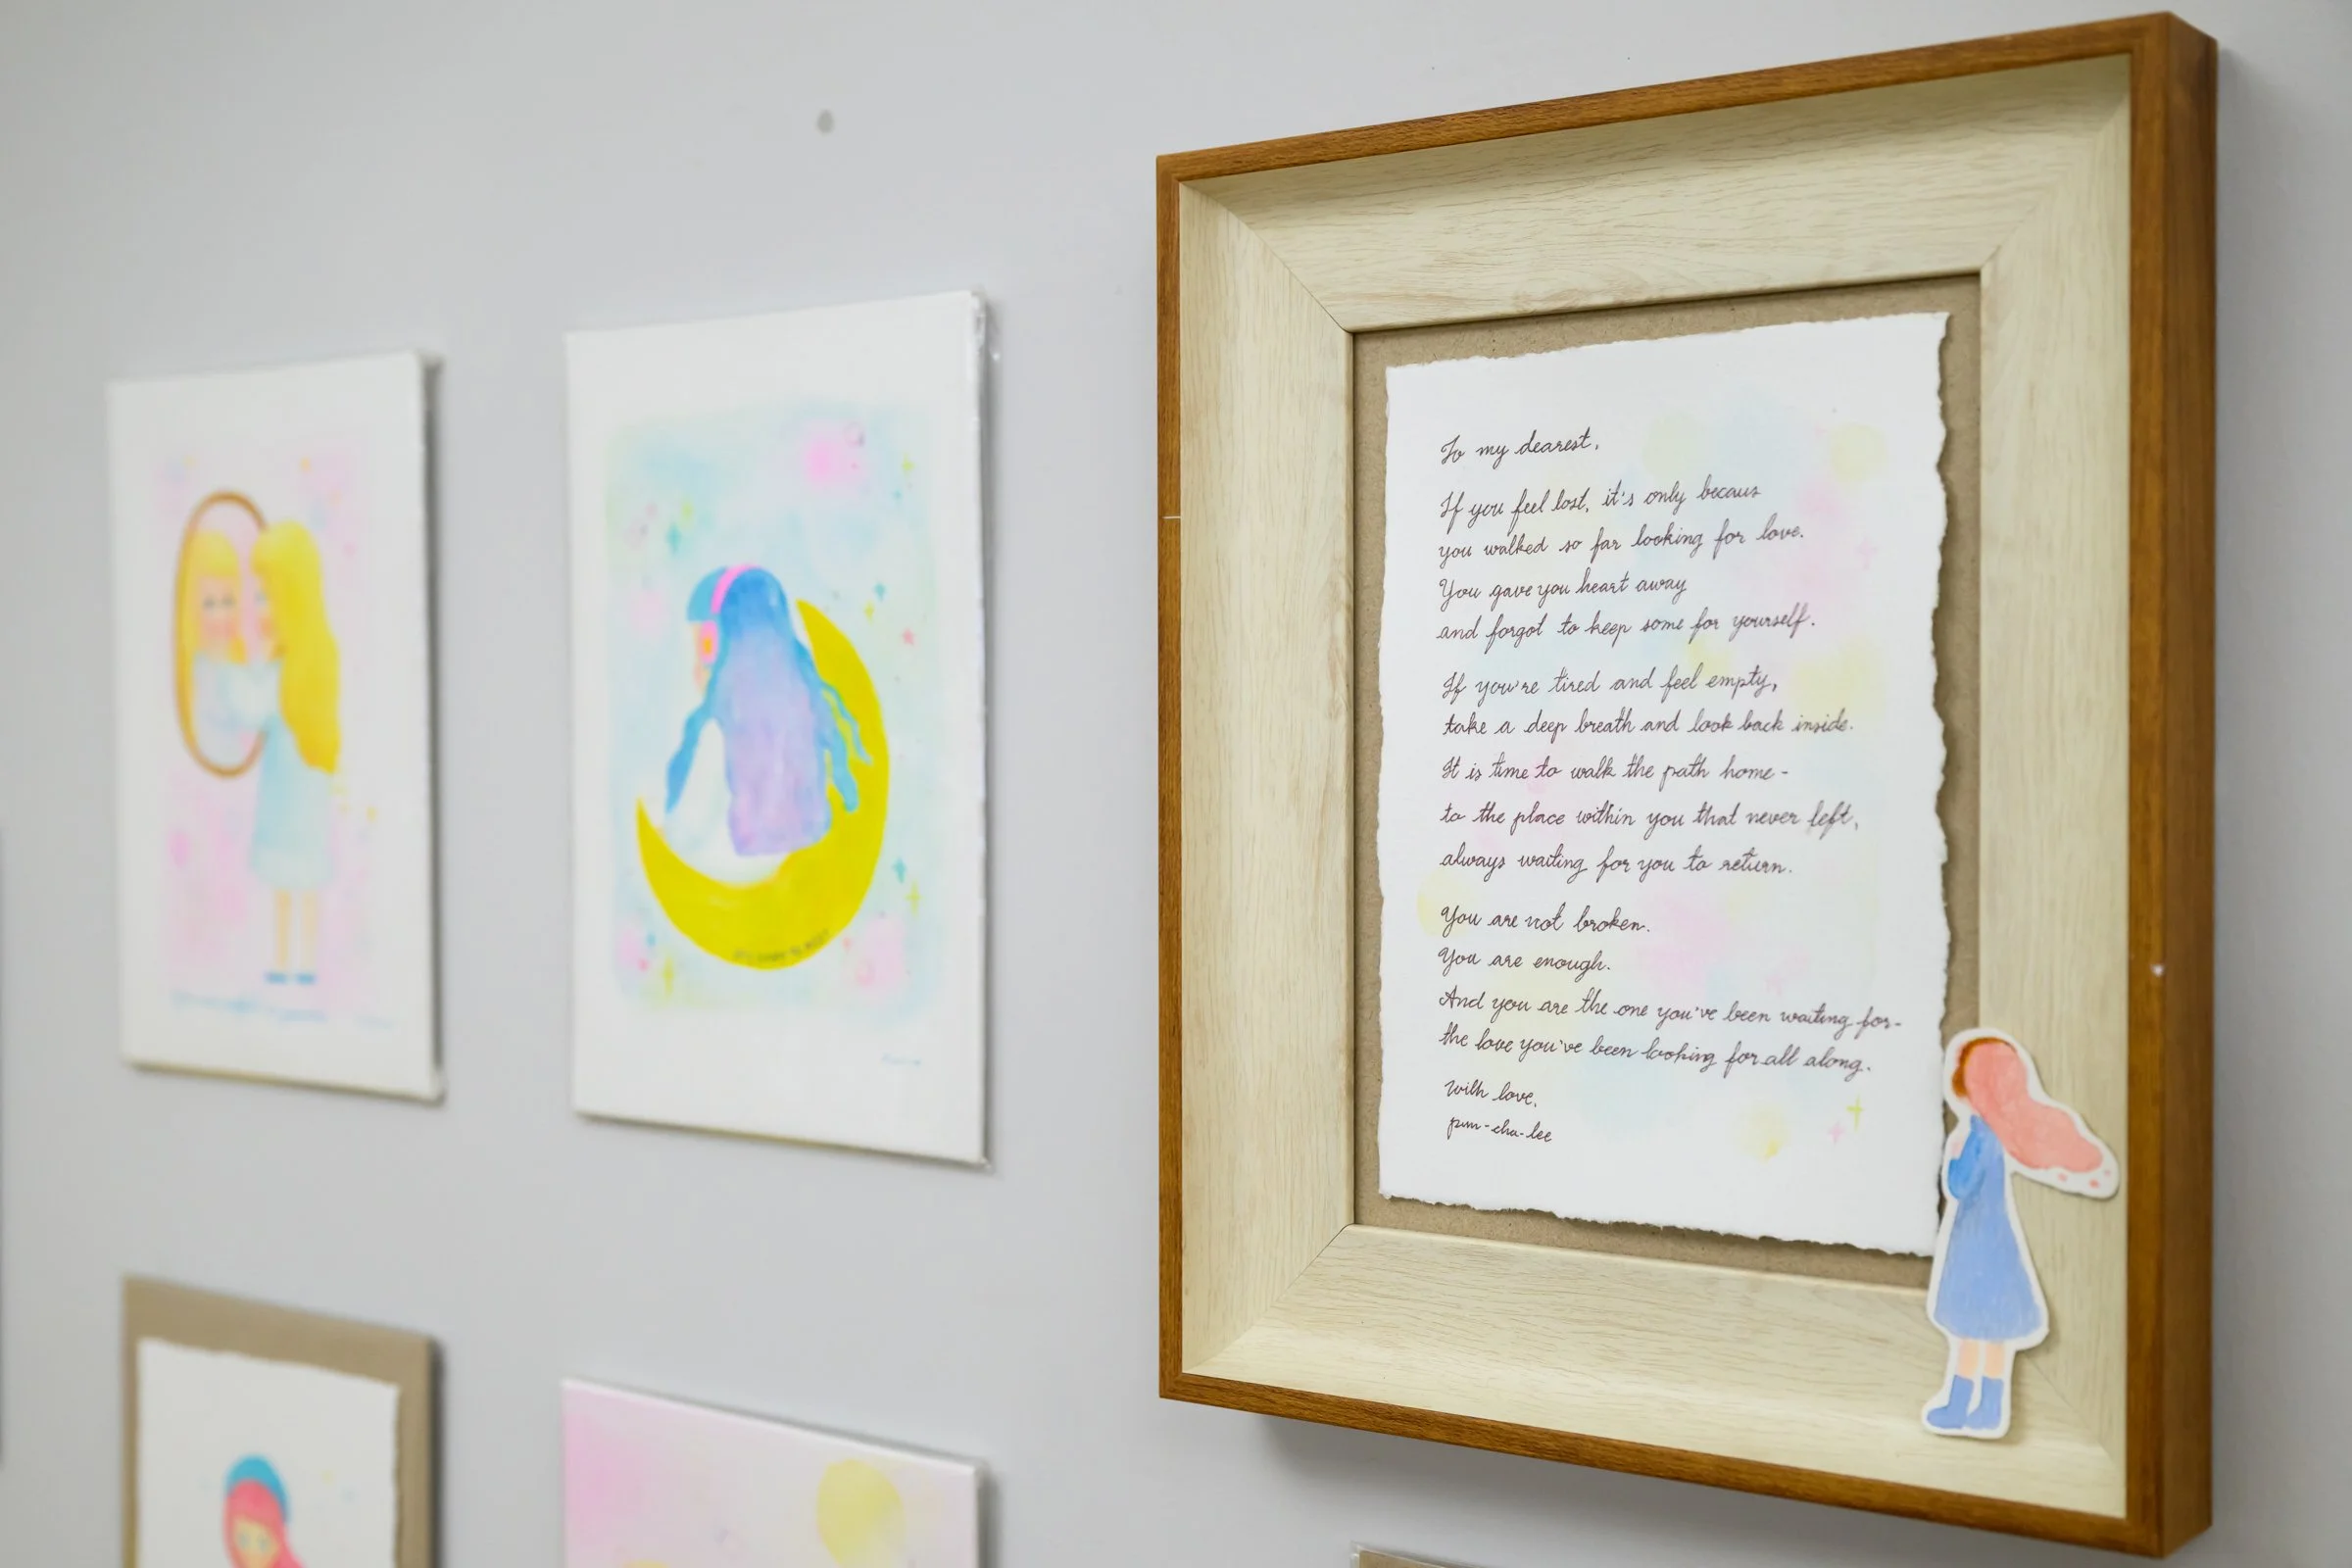 To my dearest,
If you feel lost, it's only becaus
you walked so far looking for love.
You gave you heart away
and forgot to keep some for yourself.
If you're tired and feel empty,
take a deep breath and look back inside.
It is time to walk the path home -
to the place within you that never left,
always waiting for you to return.
You are not broken.
You are enough.
And you are the one you've been waiting for-
the love you've been looking for all along.
With love,
pim-cha-lee